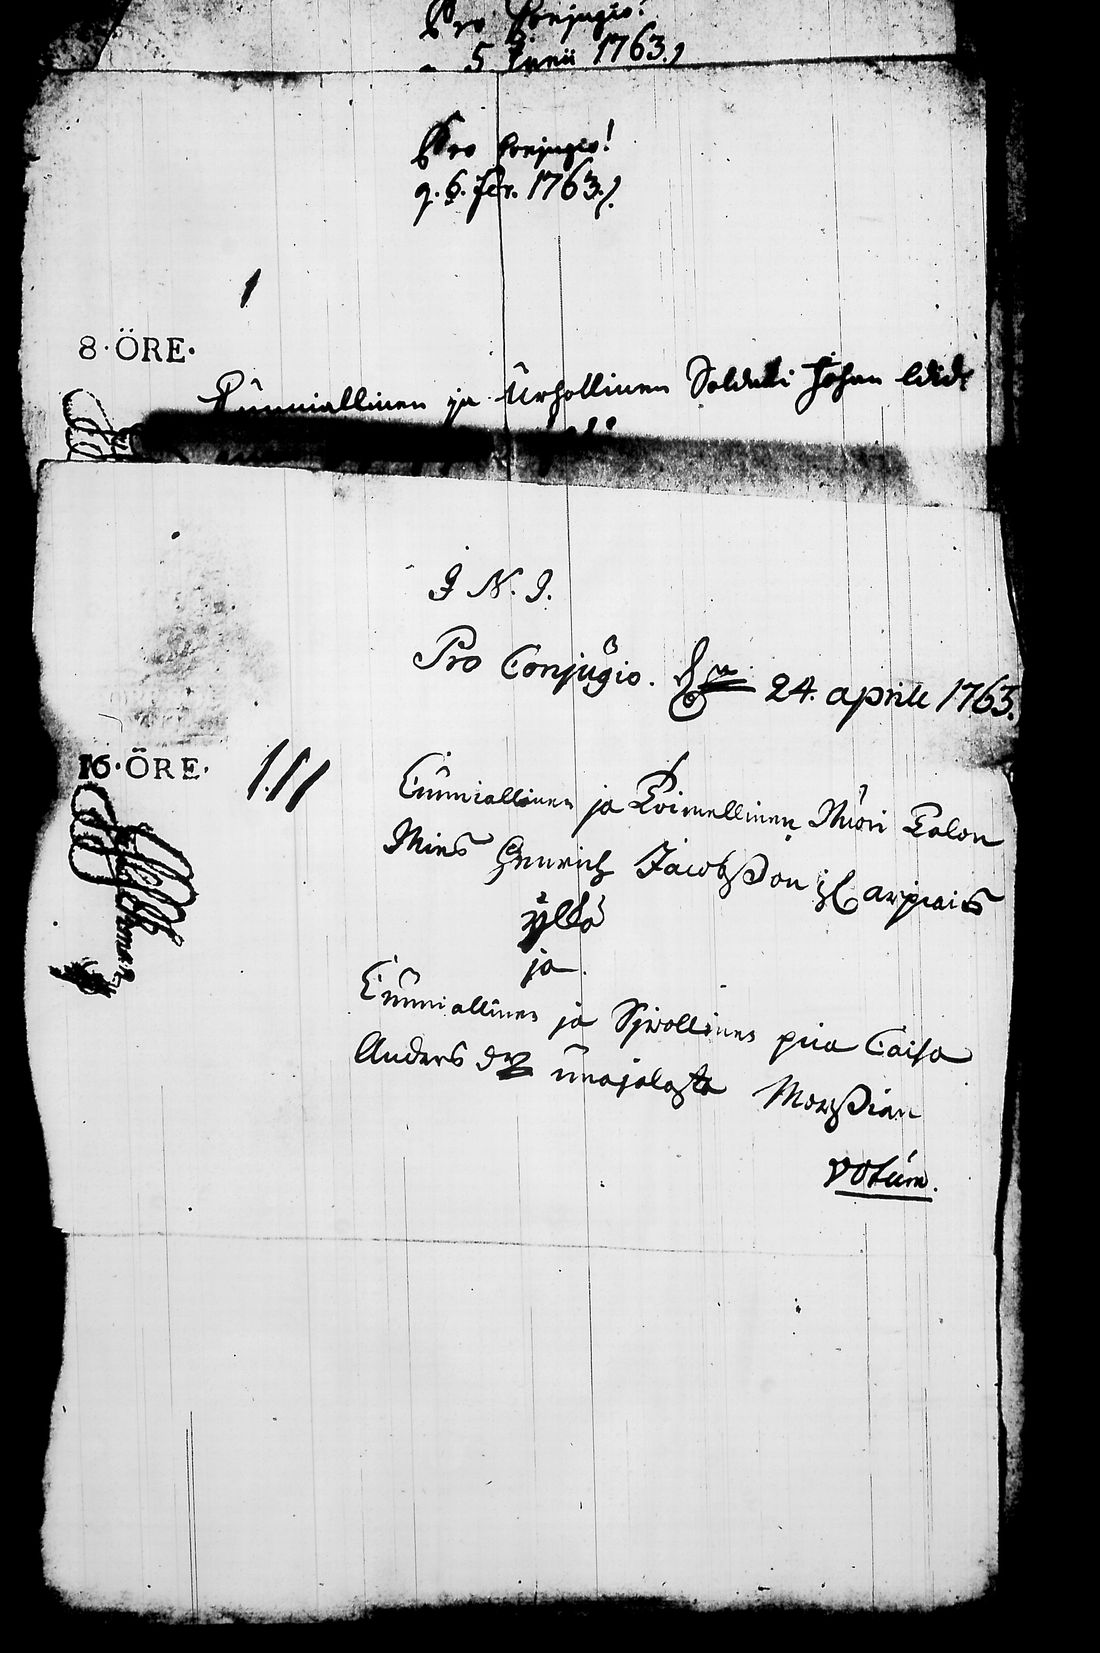 Pro Conjugio!
5 Junii 1763.
Pro Conjugio!
q. 6. Febr. 1763.
1
8·ÖRE·
Cunniallinen ja Urhollinen Soldati Johan
I N. I.
Pro Conjugio. 24. aprile 1763.
16·ÖRE·
111
Cunniallinen ja Toimellinen Nuori Talon
Mies Henrich Jacobsson Karpiais
yllkä
ja
Cunniallinen ja Sjwollinen piia Caisa
Anders dr unajalasta Morsian
votum.